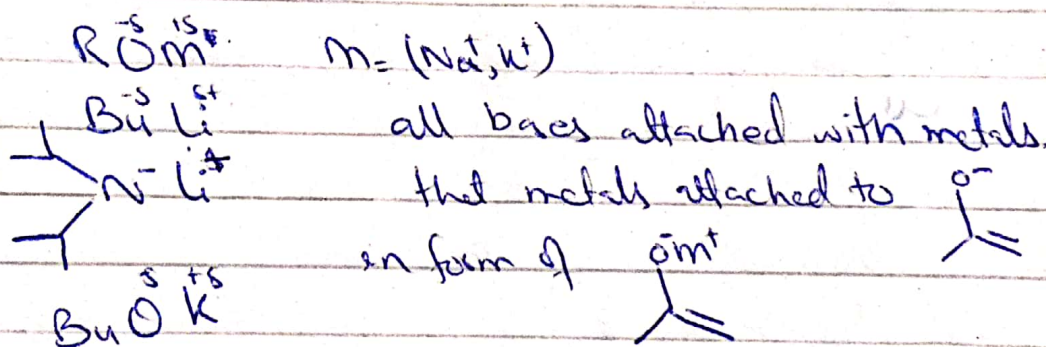 RO⁻ᵟ M⁺ᵟ M = (Na⁺, K⁺)
Bu⁻ᵟ Li ᵟ⁺ all baes attached with metals.
N⁻ Li⁺ that metals attached to O⁻
in form of O⁻M⁺
BuO ᵟ K⁺ᵟ